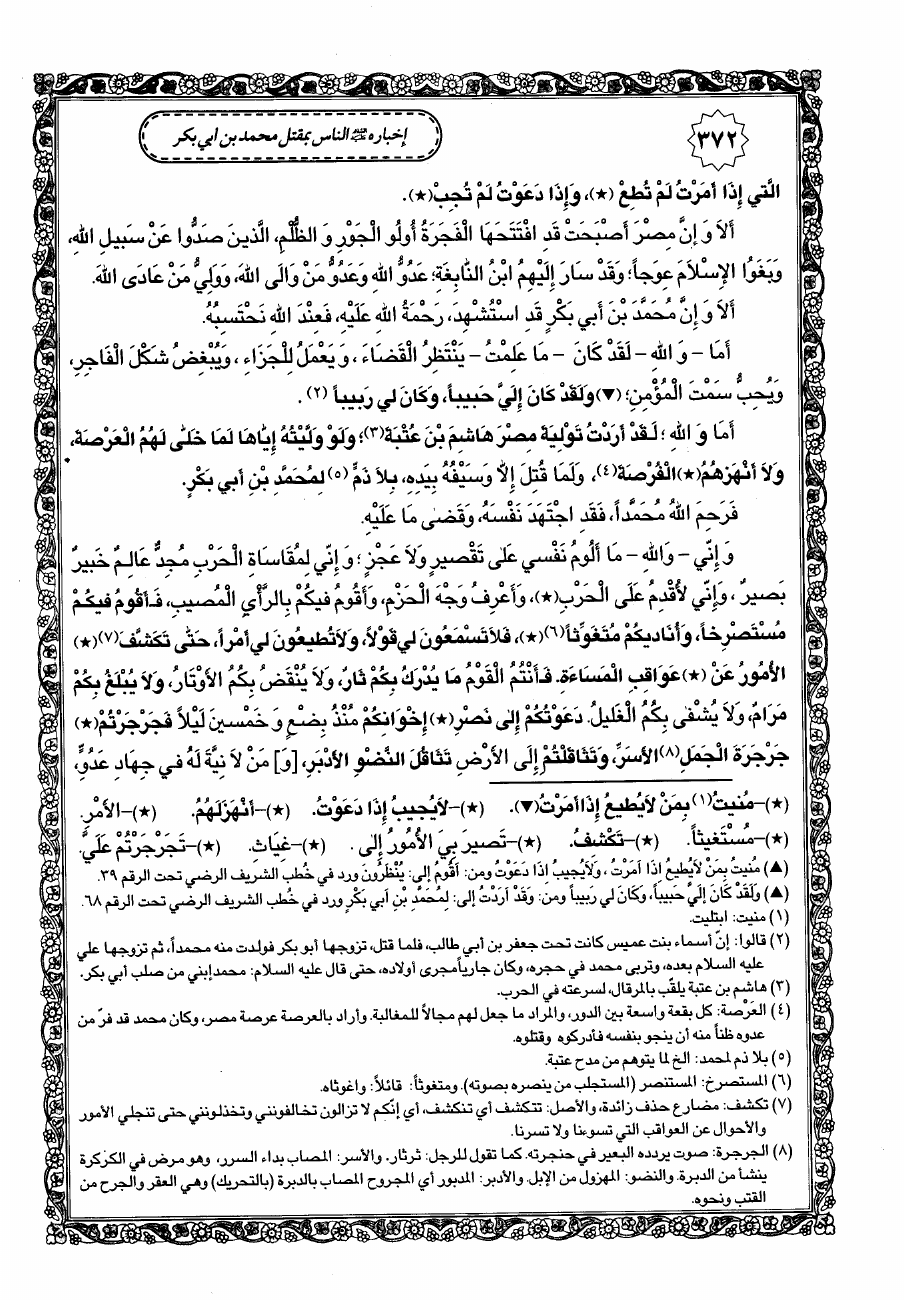 ٣٧٢
إخباره ﷺ الناس بمقتل محمد بن ابي بكر
الَّتي إِذَا أَمَرْتُ لَمْ تُطِعْ (★)، وَإِذَا دَعَوْتُ لَمْ تُجِبْ(★).
أَلاَ وَ إِنَّ مِصْرَ أَصْبَحَتْ قَدِ افْتَتَحَهَا الْفَجَرَةُ أُولُو الْجَوْرِ وَ الظُّلْمِ، الَّذينَ صَدُّوا عَنْ سَبيلِ اللهِ،
وَبَغَوُا الإِسْلاَمَ عِوَجاً؛ وَقَدْ سَارَ إِلَيْهِمُ ابْنُ النَّابِغَةِ؛ عَدُوُّ اللهِ وَعَدُوُّ مَنْ وَالَى اللهَ، وَوَلِيُّ مَنْ عَادَى اللهَ.
أَلاَ وَ إِنَّ مُحَمَّدَ بْنَ أَبي بَكْرٍ قَدِ اسْتُشْهِدَ، رَحْمَةُ اللهِ عَلَيْهِ، فَعِنْدَ اللهِ نَحْتَسِبُهُ.
أَمَا – وَ اللهِ – لَقَدْ كَانَ – مَا عَلِمْتُ – يَنْتَظِرُ الْقَضَاءَ، وَ يَعْمَلُ لِلْجَزَاءِ، وَيُبْغِضُ شَكْلَ الْفَاجِرِ،
وَيُحِبُّ سَمْتَ الْمُؤْمِنِ؛ (▼)وَلَقَدْ كَانَ إِلَيَّ حَبيباً، وَكَانَ لي رَبيباً (٢).
أَمَا وَ اللهِ؛ لَقَدْ أَرَدْتُ تَوْلِيَةَ مِصْرَ هَاشِمَ بْنَ عُتْبَةَ(٣)؛ وَلَوْ وَلَّيْتُهُ إِيَّاهَا لَمَا خَلَّى لَهُمُ الْعَرْصَةَ،
وَلاَ أَنْهَزَهُمُ(★)الْفُرْصَةَ(٤)، وَلَمَا قُتِلَ إِلاَّ وَسَيْفُهُ بِيَدِهِ، بِلاَ ذَمٍّ (٥) لِمُحَمَّدِ بْنِ أَبي بَكْرٍ.
فَرَحِمَ اللهُ مُحَمَّداً، فَقَدِ اجْتَهَدَ نَفْسَهُ، وَقَضى مَا عَلَيْهِ.
وَ إِنّي – وَاللهِ – مَا أَلُومُ نَفْسي عَلى تَقْصيرٍ وَلاَ عَجْزٍ؛ وَ إِنّي لِمُقَاسَاةِ الْحَرْبِ مُجِدٌّ عَالِمٌ خَبيرٌ
بَصيرٌ، وَإِنّي لأُقْدِمُ عَلَى الْحَرْبِ(★)، وَأَعْرِفُ وَجْهَ الْحَزْمِ، وَأَقُومُ فيكُمْ بِالرَّأْيِ الْمُصيبِ، فَأَقُومُ فيكُمْ
مُسْتَصْرِخاً، وَأُنَاديكُمْ مُتَغَوِّثاً(٦)(★)، فَلاَتَسْمَعُونَ لي قَوْلاً، وَلاَتُطيعُونَ لي أَمْراً، حَتّى تَكَشَّفَ(٧)(★)
الأُمُورُ عَنْ (★)عَوَاقِبِ الْمَسَاءَةِ. فَأَنْتُمُ الْقَوْمُ مَا يُدْرَكُ بِكُمْ ثَارٌ، وَلاَ يُنْقَضُ بِكُمُ الأَوْتَارُ، وَلاَ يُبْلَغُ بِكُمْ
مَرَامٌ، وَلاَ يُشْفى بِكُمُ الْغَليلُ. دَعَوْتُكُمْ إِلى نَصْرِ(★) إِخْوَانِكُمْ مُنْذُ بِضْعٍ وَ خَمْسينَ لَيْلاً فَجَرْجَرْتُمْ(★)
جَرْجَرَةَ الْجَمَلِ(٨)الأَسَرِّ، وَتَثَاقَلْتُمْ إِلَى الأَرْضِ تَثَاقُلَ النِّضْوِ الأَدْبَرِ، [وَ] مَنْ لاَ نِيَّةَ لَهُ في جِهَادِ عَدُوٍّ،
(★)–مُنيتُ(١) بِمَنْ لاَيُطيعُ إِذَا أَمَرْتُ(▼). (★)–لاَيُجيبُ إِذَا دَعَوْتُ. (★)–أَنْهَزَلَهُمُ. (★)–الأَمْرِ.
(★)–مُسْتَغيثاً. (★)–تَكْشِفُ. (★)–تَصيرَ بِيَ الأُمُورُ إِلى. (★)–غِيَاثِ. (★)–تَجَرْجَرْتُمْ عَلَيَّ.
(▲) مُنيتُ بِمَنْ لاَيُطيعُ إِذَا أَمَرْتُ، وَلاَيُجيبُ إِذَا دَعَوْتُ ومن: أَقُومُ إلى: يُنْظَرُونَ ورد في خُطب الشريف الرضي تحت الرقم ٣٩.
(▲) وَلَقَدْ كَانَ إِلَيَّ حَبيباً، وَكَانَ لي رَبيباً ومن: وَقَدْ أَرَدْتُ إلى: لِمُحَمَّدِ بْنِ أَبي بَكْرٍ ورد في خُطب الشريف الرضي تحت الرقم ٦٨.
(١) منيت: ابتليت.
(٢) قالوا: إنّ أسماء بنت عميس كانت تحت جعفر بن أبي طالب، فلما قتل، تزوجها أبو بكر فولدت منه محمداً، ثم تزوجها علي
عليه السلام بعده، وتربى محمد في حجره، وكان جارياًمجرى أولاده، حتى قال عليه السلام: محمدإبني من صلب أبي بكر.
(٣) هاشم بن عتبة يلقّب بالمرقال، لسرعته في الحرب.
(٤) العَرْصة: كل بقعة واسعة بين الدور، والمراد ما جعل لهم مجالاً للمغالبة. وأراد بالعرصة عرصة مصر، وكان محمد قد فرّ من
عدوه ظناً منه أن ينجو بنفسه فأدركوه وقتلوه.
(٥) بلا ذم لمحمد: الخ لما يتوهم من مدح عتبة.
(٦) المستصرخ: المستنصر (المستجلب من ينصره بصوته). ومتغوثاً: قائلاً: واغوثاه.
(٧) تكشف: مضارع حذف زائدة، والأصل: تتكشف أي تنكشف، أي إنّكم لا تزالون تخالفونني وتخذلونني حتى تنجلي الأمور
والأحوال عن العواقب التي تسوءنا ولا تسرنا.
(٨) الجرجرة: صوت يردده البعير في حنجرته. كما تقول للرجل: ثرثار. والأسر: المصاب بداء السرر، وهو مرض في الكركرة
ينشأ من الدبرة. والنضو: المهزول من الإبل. والأدبر: المدبور أي المجروح المصاب بالدبرة (بالتحريك) وهي العقر والجرح من
القتب ونحوه.